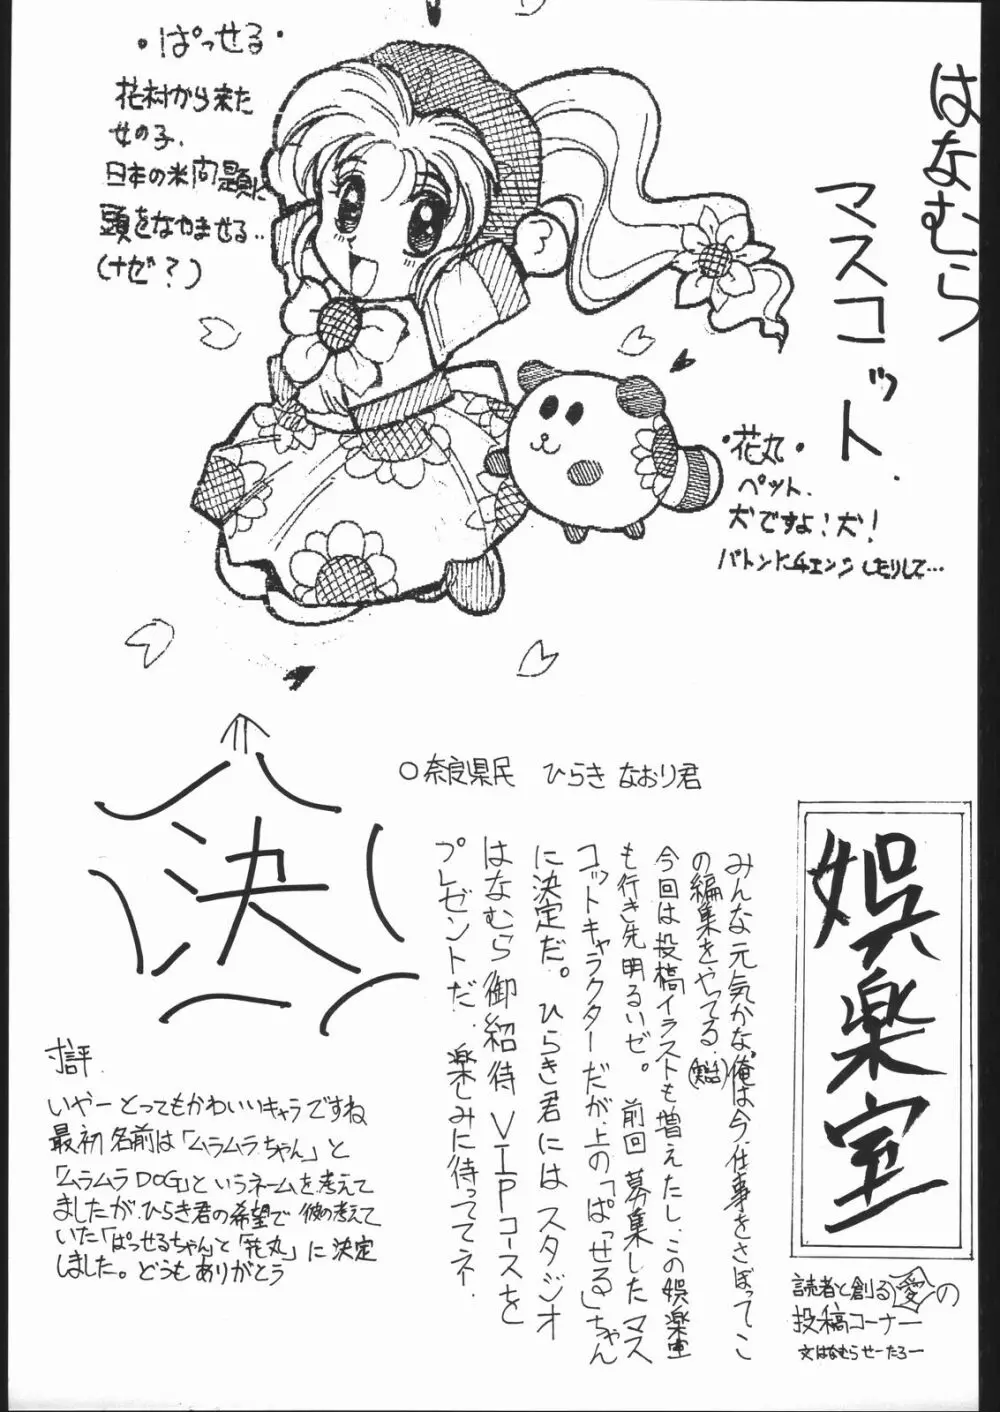 はなむら
マスコット
・ぱっせる・
花村から来た
女の子、
日本の米問題に
頭をなやませる‥
(ナゼ?)
・花丸・
ペット、
犬ですよ!犬!
バトンにチェンジしたりして…
娯楽室
読者と創る愛の
投稿コーナー
文はなむらせーたろー
みんな元気かな、俺は今、仕事をさぼって、こ
の編集をやってる。(実話)
今回は投稿イラストも増えたし、この娯楽室
も行き先明るいゼ。 前回募集したマス
コットキャラクターだが、上の「ぱっせる」ちゃん
に決定だ。 ひらき君にはスタジオ
はなむら御紹待VIPコースを
プレゼントだ、楽しみに待っててネー。
○奈良県民 ひらき なおり君
決
寸評
いやー とってもかわいいキャラですね
最初名前は「ムラムラちゃん」と
「ムラムラDOG」というネームを考えて
ましたが、ひらき君の希望で彼の考えて
いた「ぱっせるちゃん」と「花丸」に決定
しました。どうもありがとう